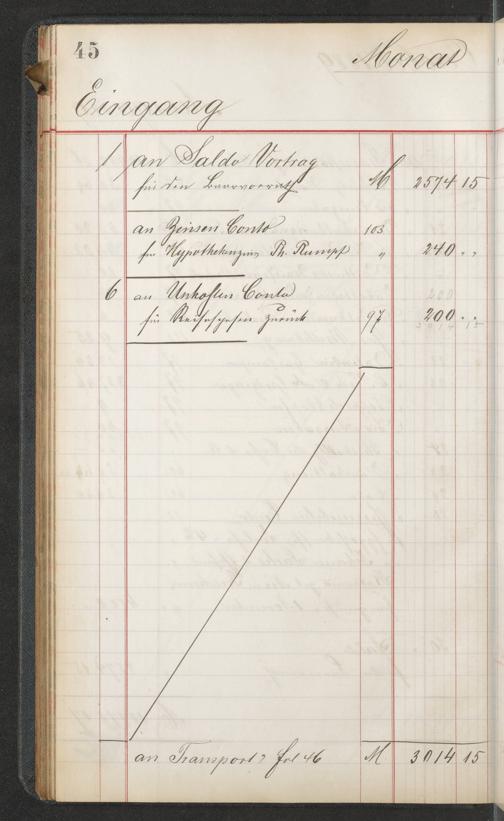 45
Monat
Eingang
1 an Saldo Vortrag
für den Baarvorrath M 2574 15
an Zinsen Conto 103
für Hypothekenzins Th. Rumpf " 240 . .
6 an Unkosten Conto
für Reisespesen zurück 97 200 . .
an Transport fol 46 M 3014 15